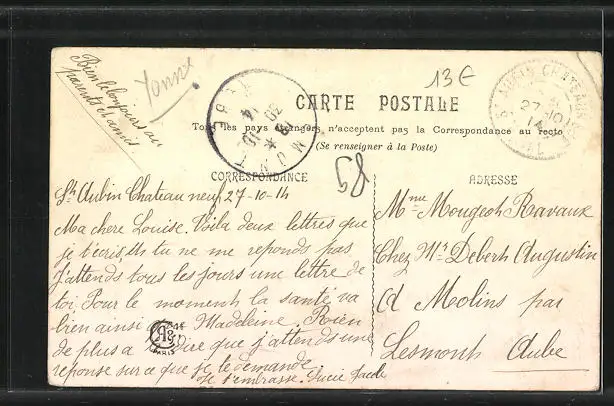 Bien le bonjour au
parents et amis
Yonne
13€
CARTE POSTALE
Tous les pays étrangers n'acceptent pas la Correspondance au recto
(Se renseigner à la Poste)
58
CORRESPONDANCE
St Aubin Chateau neuf, 27-10-14
Ma chere Louise. Voila deux lettres que
je t'ecris, et tu ne me reponds pas
J'attends tous les jours une lettre de
toi. Pour le moment la santé va
bien ainsi Madeleine. Rien
de plus a dire que j'attends une
reponse sur ce que je te demande.
Je t'embrasse. Lucie
PARIS
ADRESSE
Mme Mougeot Ravaux
Chez Mr Deberth Augustin
a Molins par
Lesmont Aube
AUBE
30
10
14
ST AUBIN CHATEAUNEUF
27
14